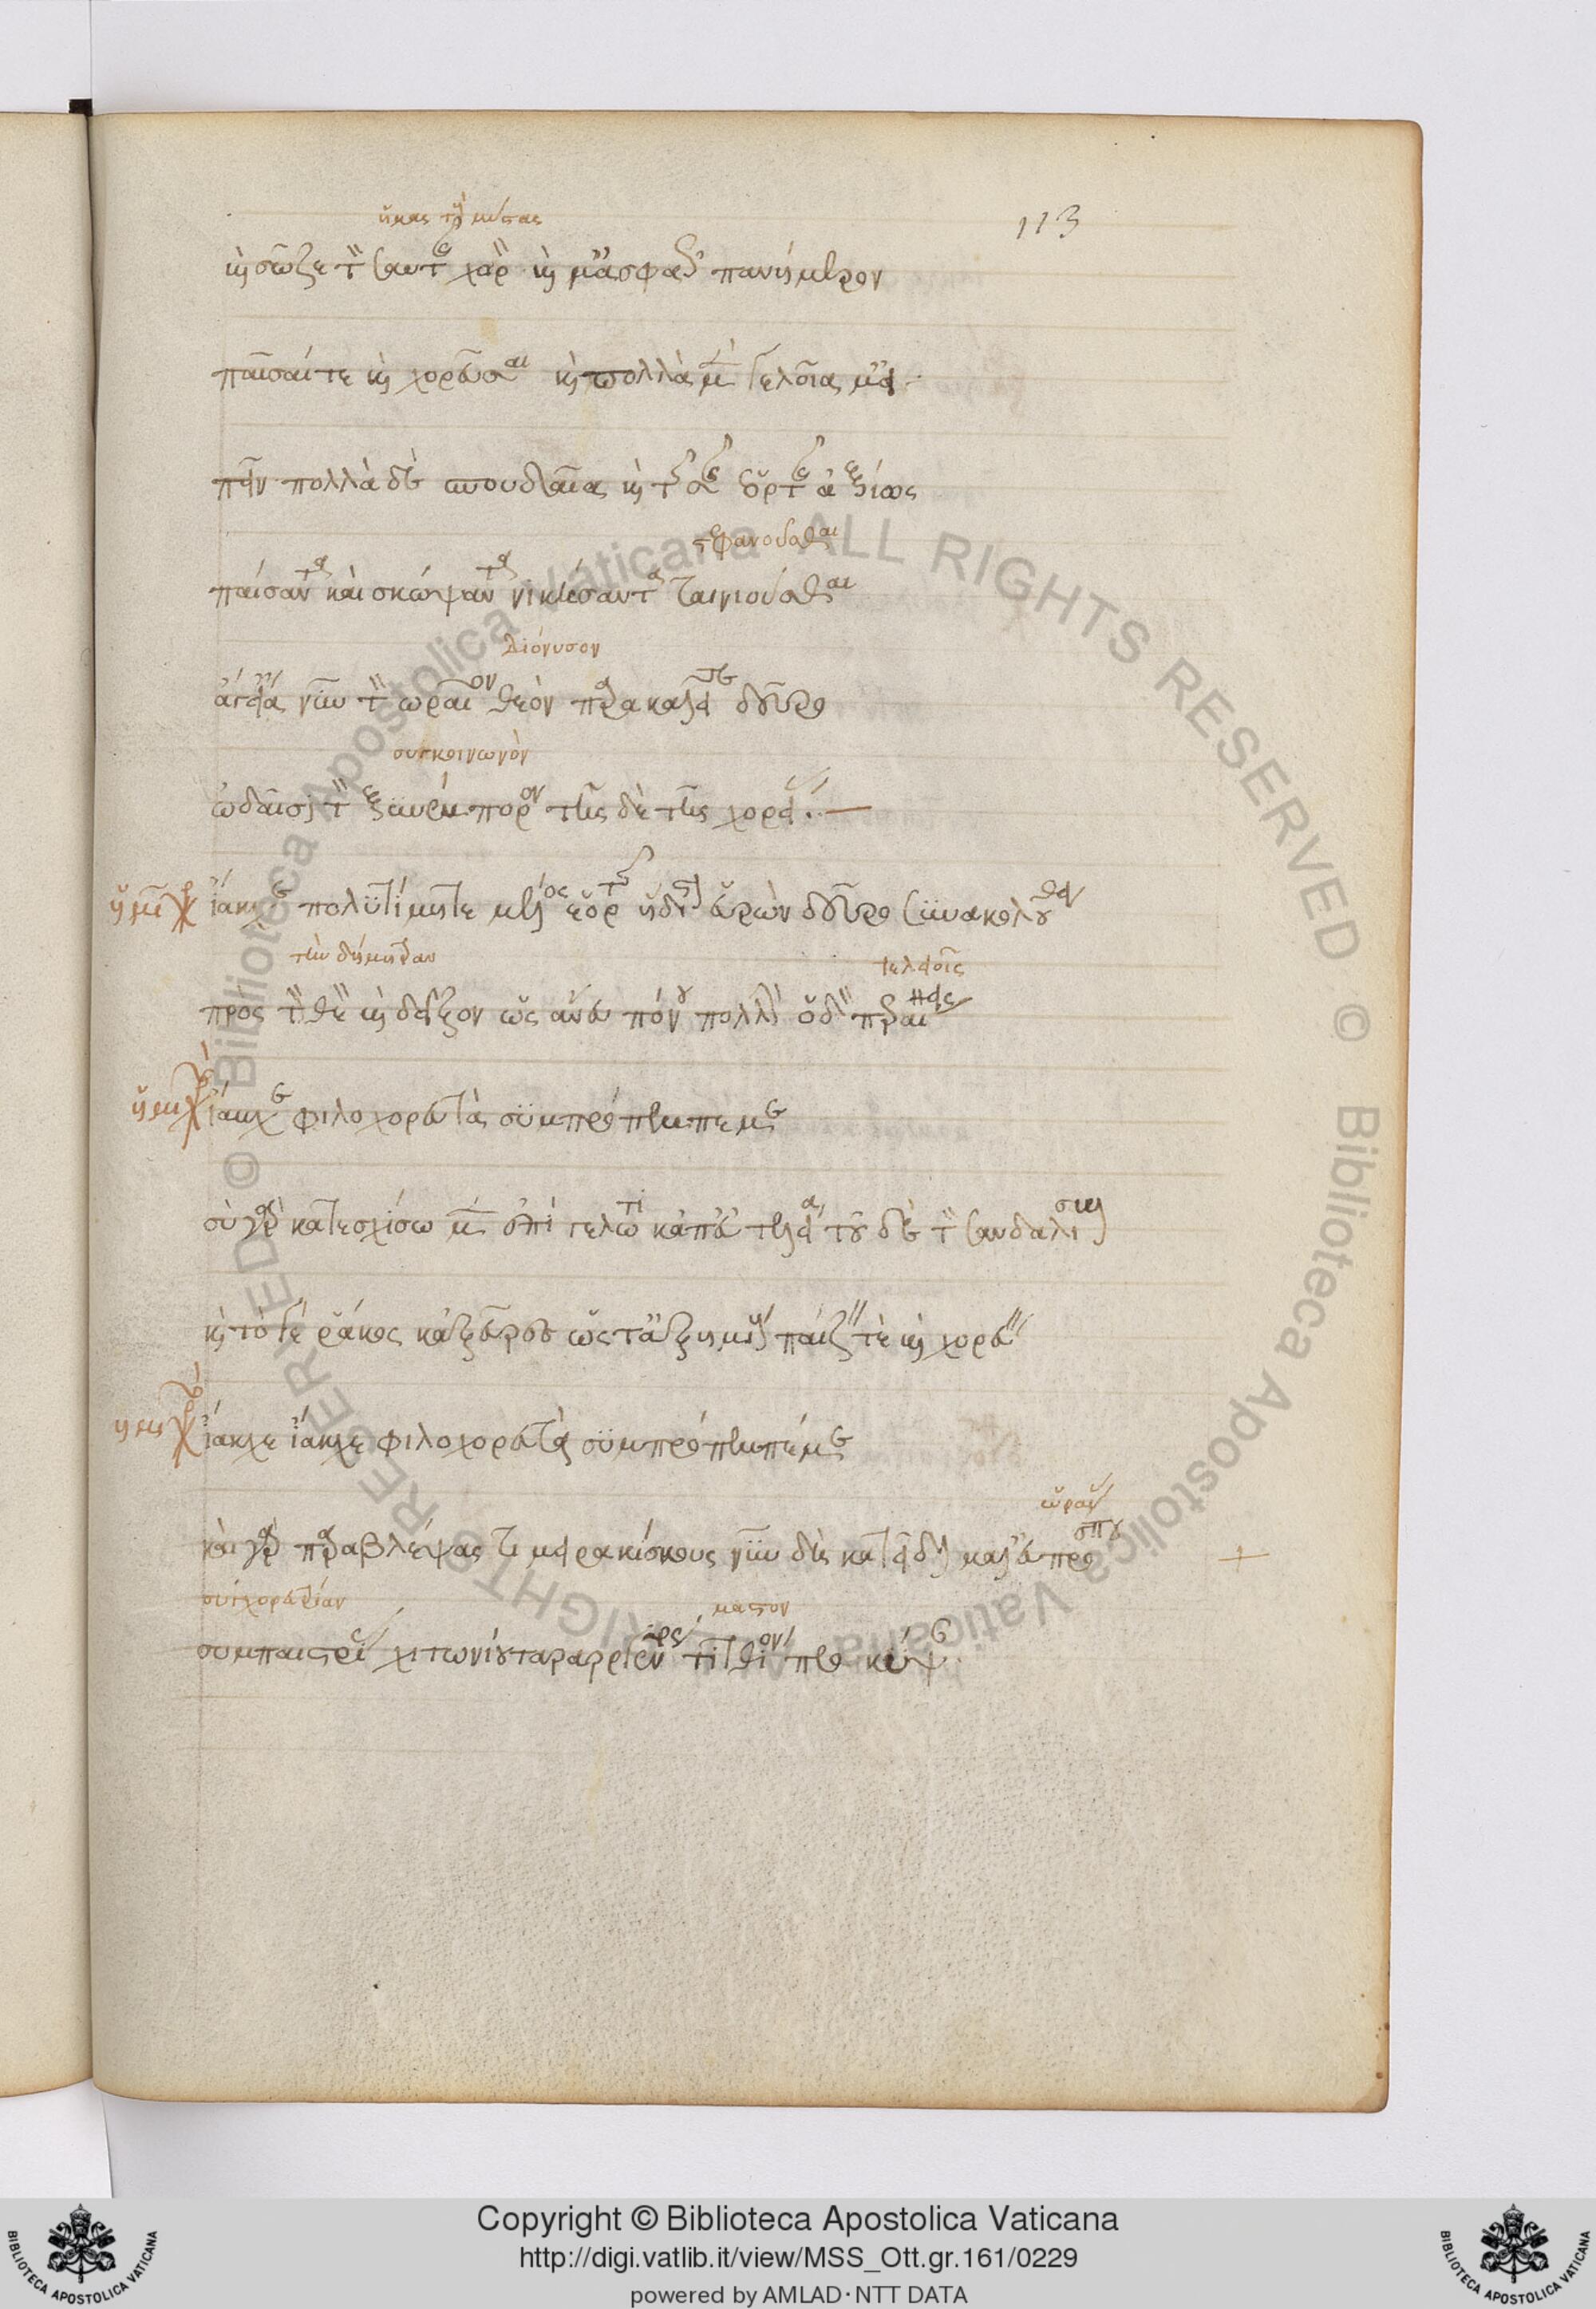 113
ἡμᾶς τοὺς μύστας
καὶ σῶζε τὸν σαυτῆς χορὸν καὶ μ' ἀσφαλῶς πανήμερον
παῖσαί τε καὶ χορεῦσαι καὶ πολλὰ μὲν γελοῖα μ' εἰ
πεῖν πολλὰ δὲ σπουδαῖα καὶ τῆς σῆς ἑορτῆς ἀξίως
στεφανοῦσθαι
παίσαντα καὶ σκώψαντα νικήσαντα ταινιοῦσθαι
Διόνυσον
νῦν τὸν ὡραῖον θεὸν παρακαλεῖτε δεῦρο
συγκοινωνὸν
ὠδαῖσι τὸν ξυνέμπορον τῆσδε τῆς χορείας
ἡμιχ ἴακχε πολυτίμητε μέλος ἑορτῆς ἥδιστον εὑρὼν δεῦρο συνακολούθει
τὴν δήμητραν
πρὸς τὴν θεὸν καὶ δεῖξον ὡς ἄνευ πόνου πολλὴν ὁδὸν περαίνεις
ἡμιχ ἴακχε φιλοχορευτὰ συμπρόπεμπέ με
σὺ γὰρ κατεσχίσω μὲν ἐπὶ γέλωτι κἀπ' εὐτελείᾳ τόν δε τὸν σανδαλίσκον
καὶ τό γε ῥάκος κἀξεῦρες ὥστ' ἀζημίους παίζειν τὲ καὶ χορεύειν
ἡμιχ ἴακχε ἴακχε φιλοχορευτὰ συμπρόπεμπέ με
ὡραίας
καὶ γὰρ παραβλέψας τι μειρακίσκης νῦν δὴ κατεῖδον καὶ μάλ' εὐπροσώπου
συγχορευτρίαν μαστὸν
συμπαιστρίας χιτωνίου παραρραγέντος τιτθίον προκύψαν